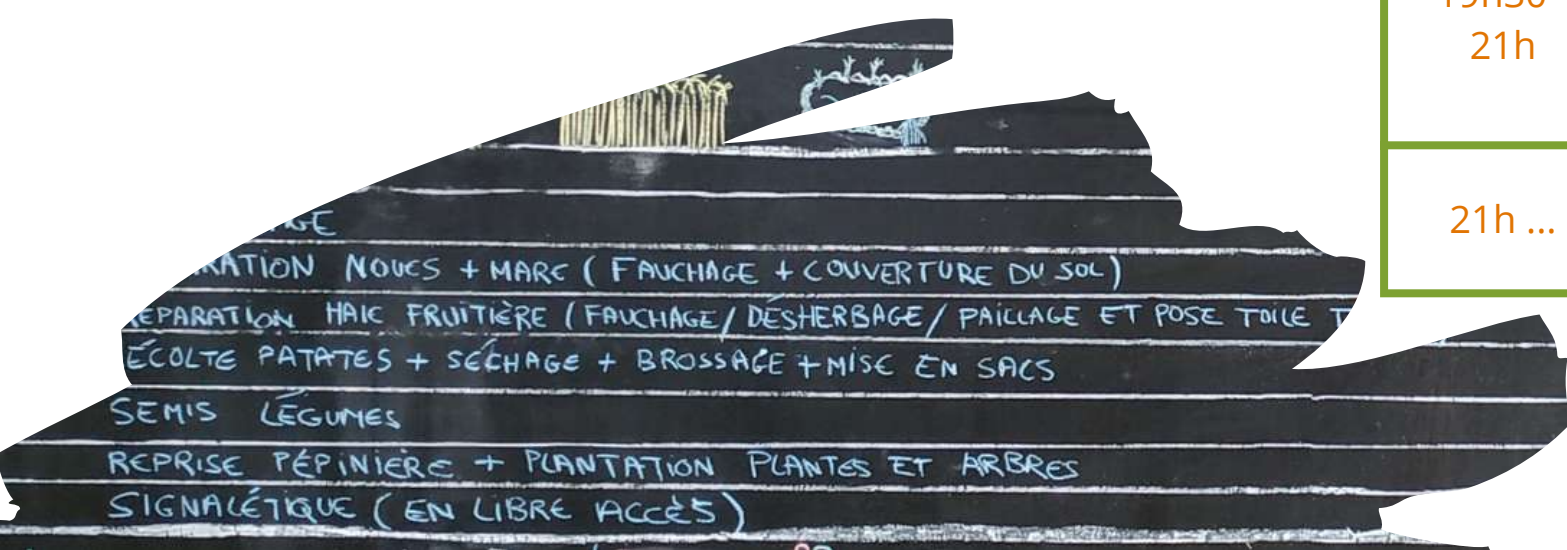 21h
21h ...
RATION NOUES + MARE ( FAUCHAGE + COUVERTURE DU SOL )
ÉPARATION HAIE FRUITIÈRE ( FAUCHAGE / DÉSHERBAGE / PAILLAGE ET POSE TOILE T
ÉCOLTE PATATES + SÉCHAGE + BROSSAGE + MISE EN SACS
SEMIS LÉGUMES
REPRISE PÉPINIÈRE + PLANTATION PLANTES ET ARBRES
SIGNALÉTIQUE ( EN LIBRE ACCÈS )